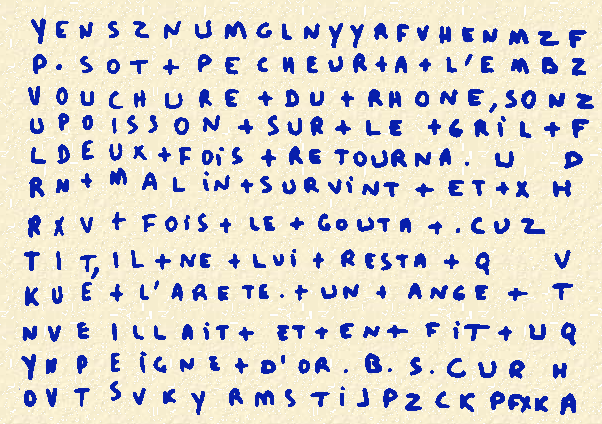 YENSZNUMGLNYYRFVHENMZF
P. SOT+PECHEUR+A+L'EMBZ
VOUCHURE+DU+RHONE,SONZ
UPOISSON+SUR+LE+GRIL+F
LDEUX+FOIS+RETOURNA. U D
RN+MALIN+SURVINT+ET+X H
RXV+FOIS+LE+GOUTA+.CUZ
TIT,IL+NE+LUI+RESTA+Q V
KUE+L'ARETE.+UN+ANGE+ T
NVEILLAIT+ET+EN+FIT+UQ
YNPEIGNE+D'OR.B.S.CUR H
OVTSVKYRMSTIJPZCKPFXKA